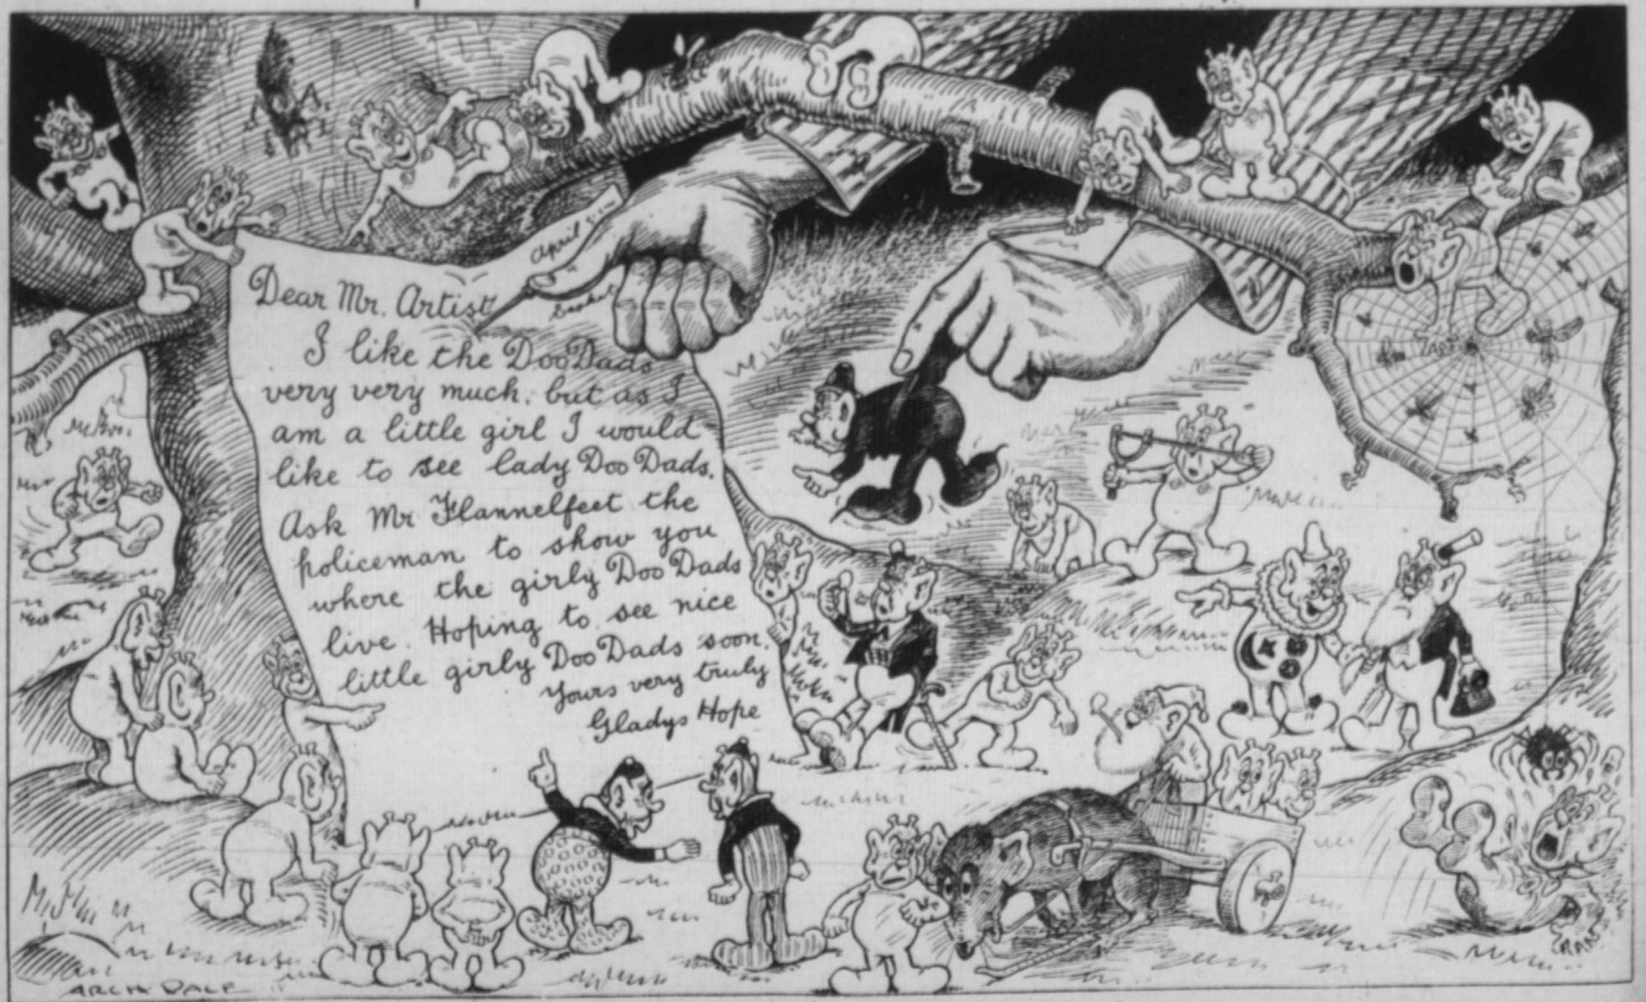 April
Dear Mr. Artist
I like the Doo Dads
very very much, but as I
am a little girl I would
like to see lady Doo Dads.
Ask Mr Flannelfeet the
policeman to show you
where the girly Doo Dads
live. Hoping to see nice
little girly Doo Dads soon.
Yours very truly
Gladys Hope
ARCH DALE